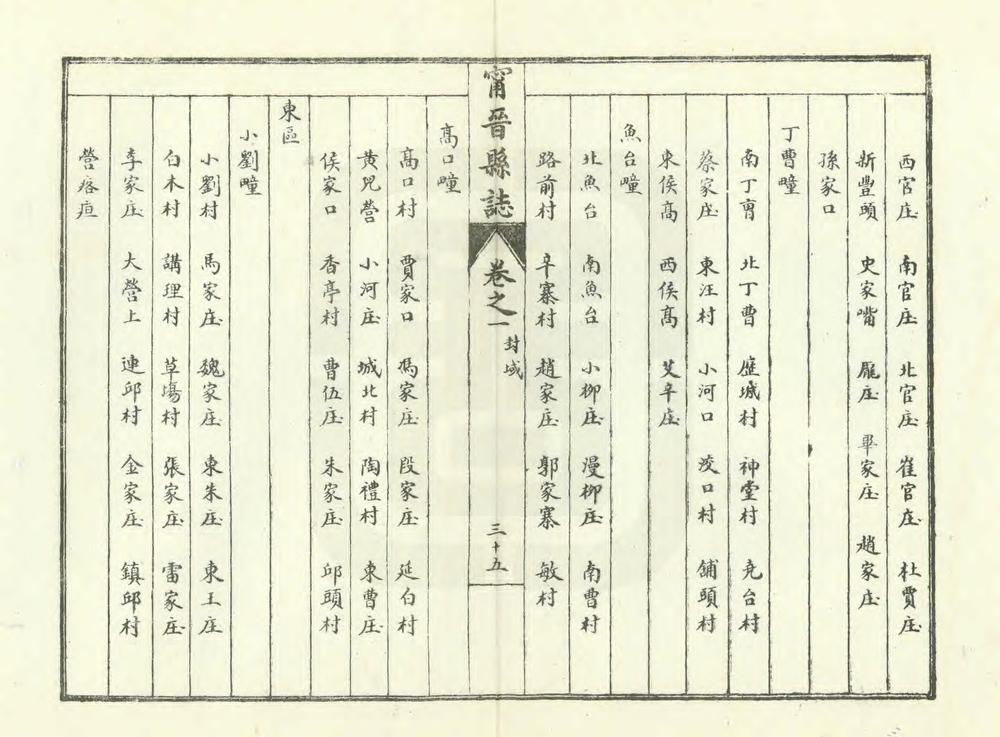 西官庄 南官庄 北官庄 崔官庄 杜賈庄
新豐頭 史家嘴 龐庄 畢家庄 趙家庄
孫家口
丁曹疃
南丁曺 北丁曹 雁城村 神堂村 尭台村
蔡家庄 東汪村 小河口 浚口村 舖頭村
東侯高 西侯高 艾辛庄
魚台疃
北魚台 南魚台 小柳庄 漫柳庄 南曹村
路前村 辛寨村 趙家庄 郭家寨 敏村
甯晉縣誌 卷之一 封域 三十五
高口疃
高口村 賈家口 馮家庄 段家庄 延白村
黄兒營 小河庄 城北村 陶禮村 東曹庄
侯家口 香亭村 曹伍庄 朱家庄 邱頭村
東區
小劉疃
小劉村 馬家庄 魏家庄 東朱庄 東王庄
白木村 講理村 草塲村 張家庄 雷家庄
李家庄 大營上 連邱村 金家庄 鎮邱村
營疙疸